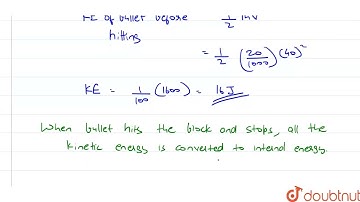 KE of bullet before 1/2 mv
hitting
= 1/2 (20/1000) (40)²
KE = 1/100 (1600) = 16 J
When bullet hits the block and stops, all the
kinetic energy is converted to internal energy.
doubtnut